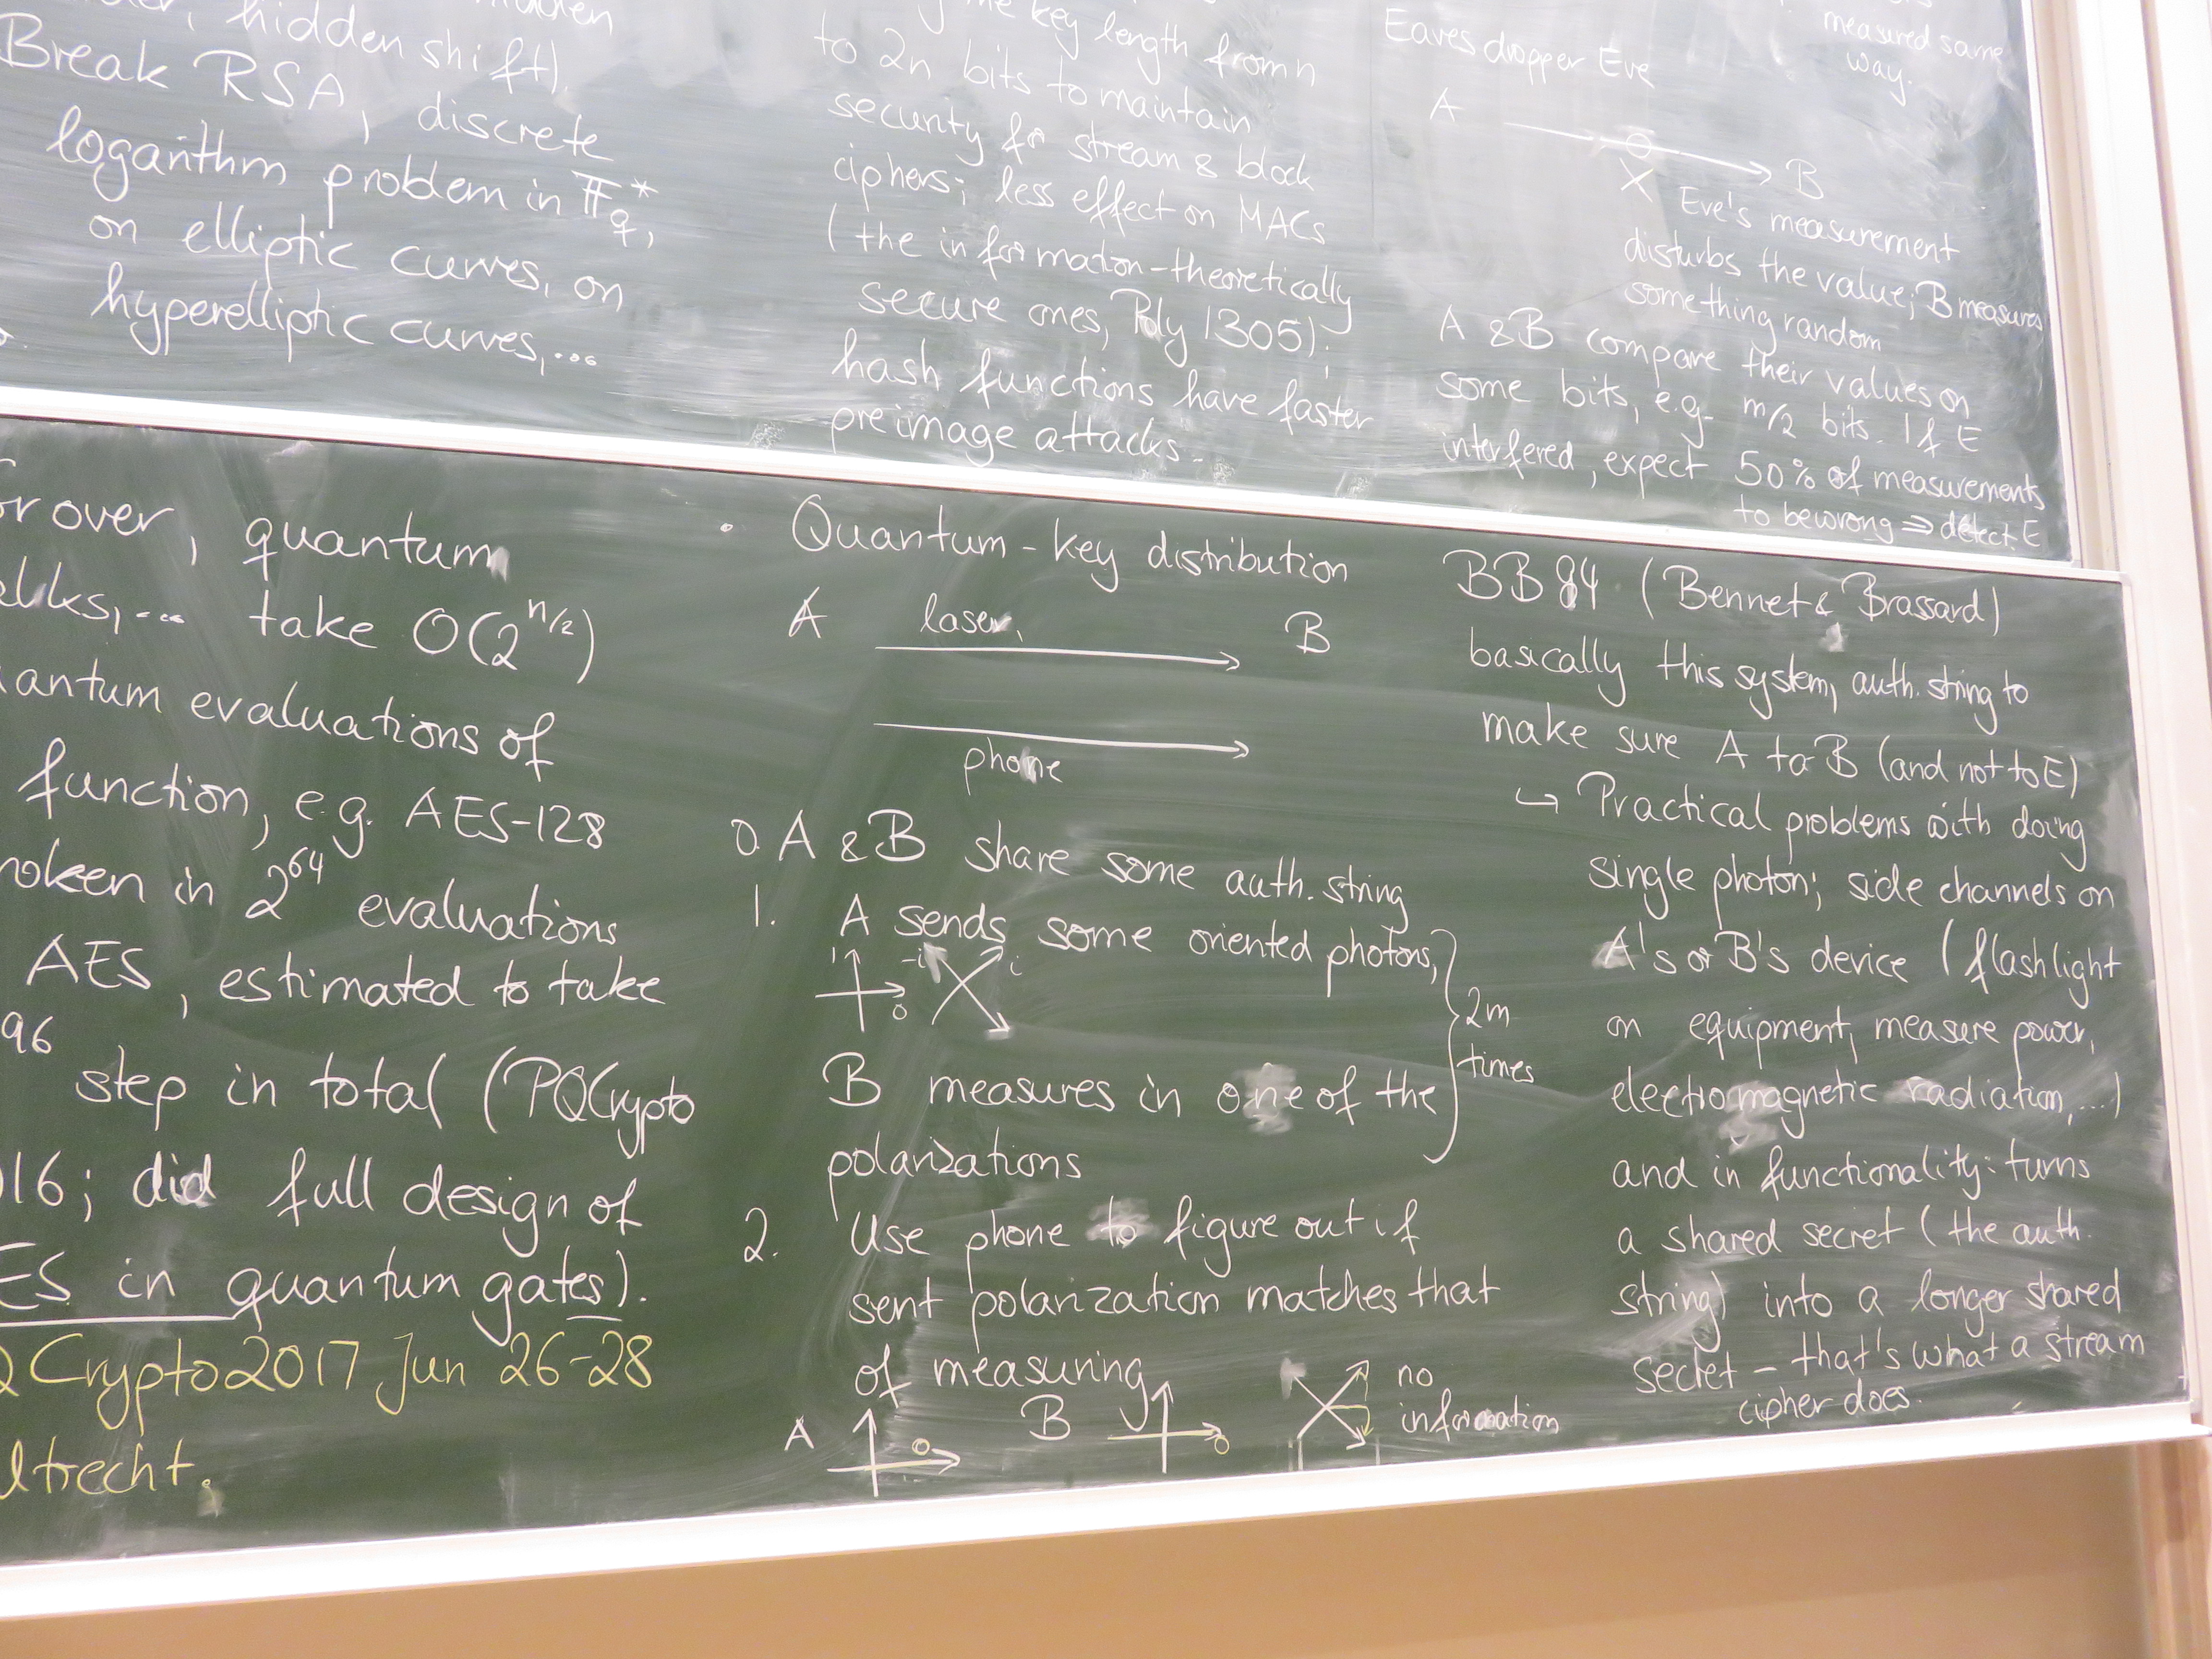 hidden shift).
Break RSA, discrete
logarithm problem in F_q^*,
on elliptic curves, on
hyperelliptic curves,...
key length from n
to 2n bits to maintain
security for stream & block
ciphers; less effect on MACs
(the information-theoretically
secure ones, Poly 1305);
hash functions have faster
preimage attacks.
measured same
way.
Eavesdropper Eve
A
B
Eve's measurement
disturbs the value; B measures
something random
A & B compare their values on
some bits, e.g. m/2 bits. If E
interfered, expect 50% of measurements
to be wrong ⇒ detect E
rover, quantum
take O(2^{n/2})
antum evaluations of
function, e.g. AES-128
roken in 2^{64} evaluations
AES, estimated to take
96
step in total (PQCrypto
16; did full design of
ES in quantum gates).
Crypto 2017 Jun 26-28
trecht.
• Quantum-key distribution
A laser B
phone
0. A & B share some auth. string
1. A sends some oriented photons,
1 -i i
0
2m
times
B measures in one of the
polarizations
2. Use phone to figure out if
sent polarization matches that
of measuring
A B no
information
BB84 (Bennet & Brassard)
basically this system, auth. string to
make sure A to B (and not to E)
↪ Practical problems with doing
single photon; side channels on
A's or B's device (flashlight
on equipment, measure power,
electromagnetic radiation,...)
and in functionality: turns
a shared secret (the auth.
string) into a longer shared
secret - that's what a stream
cipher does.